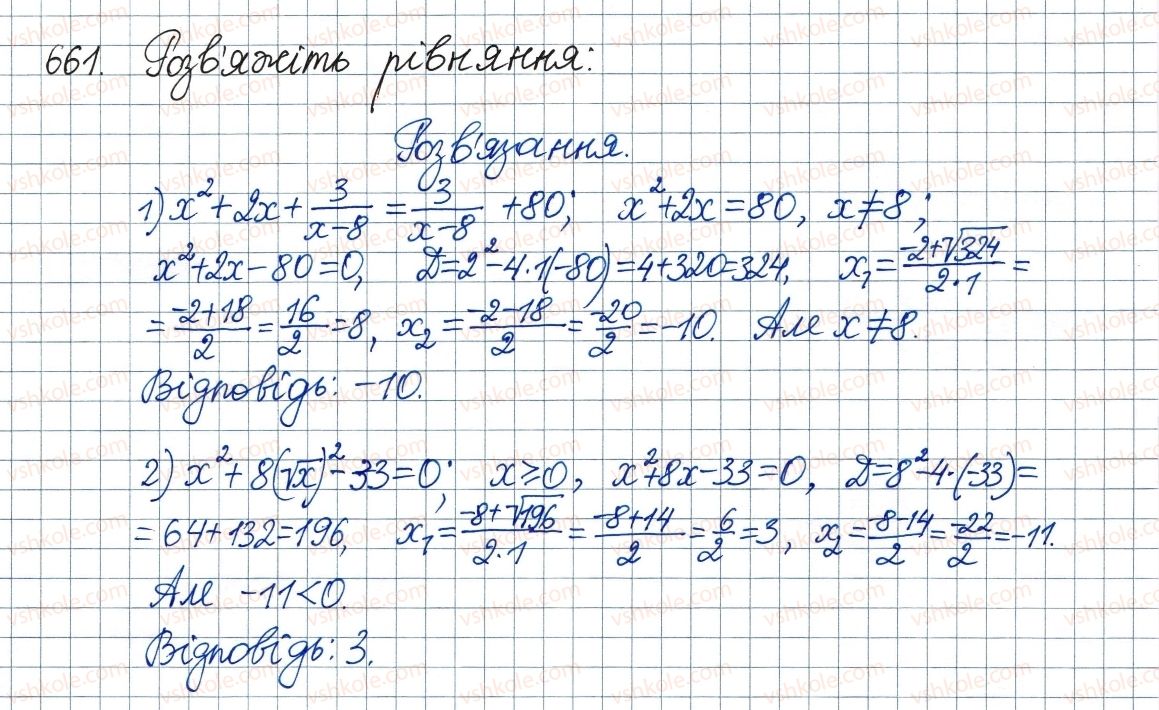 661. Розв'яжіть рівняння:
Розв'язання.
1) x² + 2x + 3/(x-8) = 3/(x-8) + 80; x² + 2x = 80, x ≠ 8;
x² + 2x - 80 = 0, D = 2² - 4·1(-80) = 4 + 320 = 324, x₁ = (-2+√324)/(2·1) =
= (-2+18)/2 = 16/2 = 8, x₂ = (-2-18)/2 = -20/2 = -10. Але x ≠ 8.
Відповідь: -10.
2) x² + 8(√x)² - 33 = 0; x ≥ 0, x² + 8x - 33 = 0, D = 8² - 4·(-33) =
= 64 + 132 = 196, x₁ = (-8+√196)/(2·1) = (-8+14)/2 = 6/2 = 3, x₂ = (-8-14)/2 = -22/2 = -11.
Але -11 < 0.
Відповідь: 3.
vshkole.com